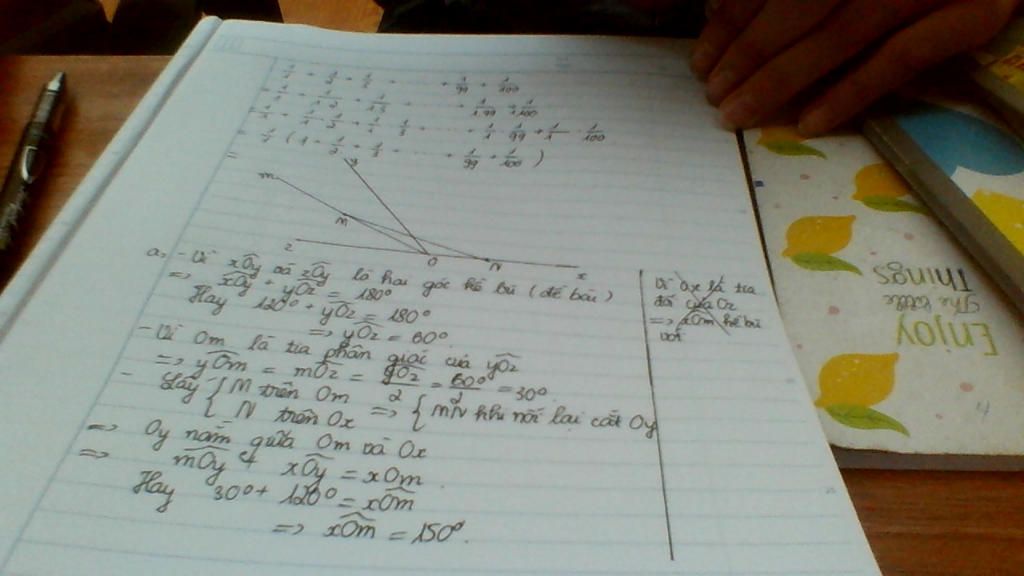 + 1/99 + 1/100
= 1/1 ( 1 + 1/2 + 1/3 + ..... + 1/99 + 1/100 )
=
y
m
M
z
O
N
x
a, - Vì xÔy và zÔy là hai góc kề bù (đề bài)
=> xÔy + yÔz = 180°
Hay 120° + yÔz = 180°
=> yÔz = 60°
- Vì Om là tia phân giác của yÔz
=> yÔm = mÔz = yÔz/2 = 60°/2 = 30°
- Lấy { M trên Om
{ N trên Ox => { MN khi nối lại cắt Oy
=> Oy nằm giữa Om và Ox
=> mÔy + xÔy = xOm
Hay 30° + 120° = xÔm
=> xÔm = 150°.
Vì Ox là tia
đối của Oz
=> xÔm kề bù
với
Enjoy
The little
Things